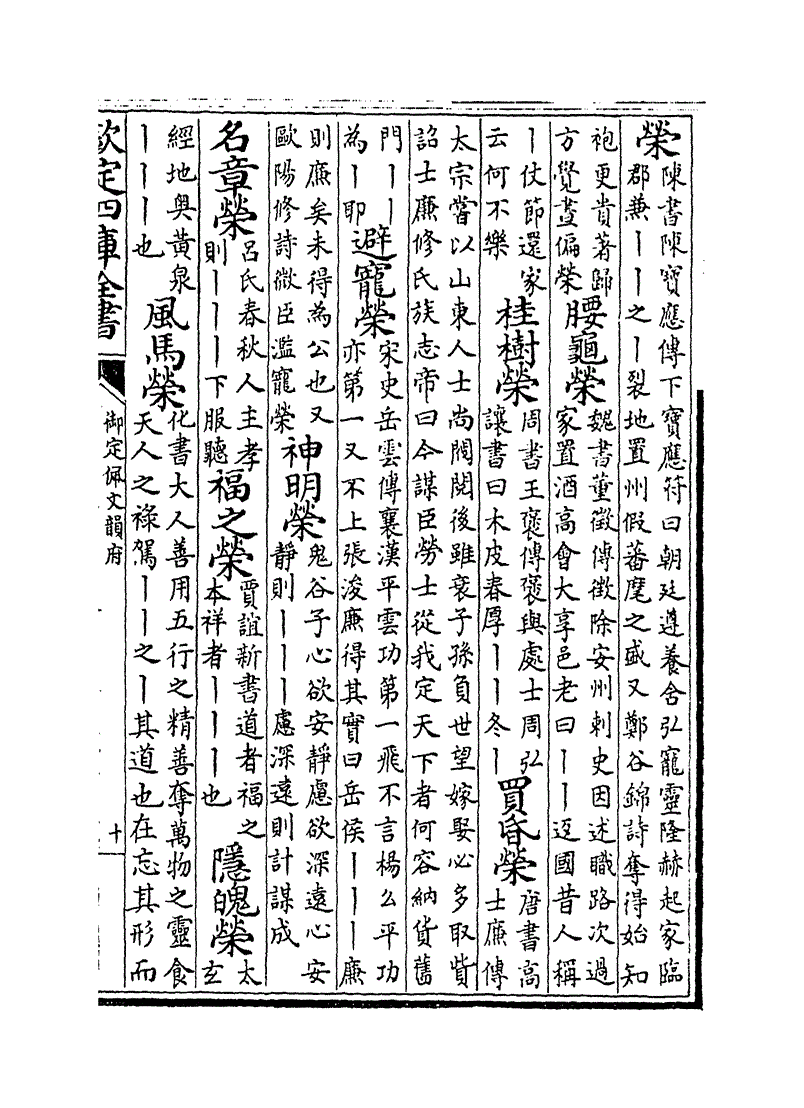 榮
陳書陳寶應傳下寶應符曰朝廷遵養含弘寵靈隆赫起家臨
郡兼丨丨之丨裂地置州假蕃麾之盛又鄭谷錦詩奪得始知
袍更貴著歸
方覺晝偏榮
腰龜榮
魏書董徵傳徵除安州刺史因述職路次過
家置酒高會大享邑老曰丨丨返國昔人稱
丨仗節還家
云何不樂
桂樹榮
周書王褒傳褒與處士周弘
讓書曰木皮春厚丨丨冬丨
買昏榮
唐書高
士廉傳
太宗嘗以山東人士尚閥閱後雖衰子孫負世望嫁娶必多取貲
詔士廉修氏族志帝曰今謀臣勞士從我定天下者何容納貨舊
門丨丨
為丨耶
避寵榮
宋史岳雲傳襄漢平雲功第一飛不言楊么平功
亦第一又不上張浚廉得其實曰岳侯丨丨丨廉
則廉矣未得為公也又
歐陽修詩微臣濫寵榮
神明榮
鬼谷子心欲安靜慮欲深遠心安
靜則丨丨丨慮深遠則計謀成
名章榮
呂氏春秋人主孝
則丨丨丨下服聽
福之榮
賈誼新書道者福之
本祥者丨丨丨也
隱魄榮
太
玄
經地奧黃泉
丨丨丨也
風馬榮
化書大人善用五行之精善奪萬物之靈食
天人之祿駕丨丨之丨其道也在忘其形而
欽定四庫全書
御定佩文韻府
十